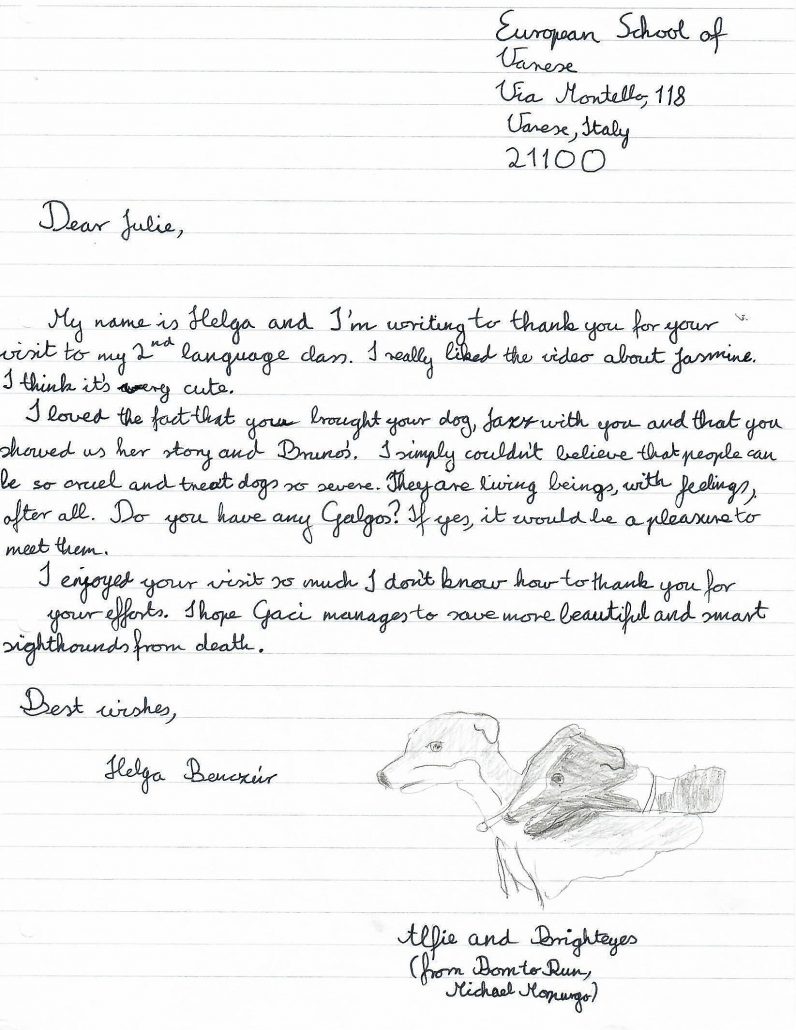 European School of
Varese
Via Montello, 118
Varese, Italy
21100
Dear Julie,
My name is Helga and I'm writing to thank you for your
visit to my 2nd language class. I really liked the video about Jasmine.
I think it's very cute.
I loved the fact that you brought your dog, Jaxx with you and that you
showed us her story and Bruno's. I simply couldn't believe that people can
be so cruel and treat dogs so severe. They are living beings, with feelings,
after all. Do you have any Galgos? If yes, it would be a pleasure to
meet them.
I enjoyed your visit so much I don't know how to thank you for
your efforts. I hope Gaci manages to save more beautiful and smart
sighthounds from death.
Best wishes,
Helga Benczúr
Alfie and Brighteyes
(from Born to Run,
Michael Mopurgo)